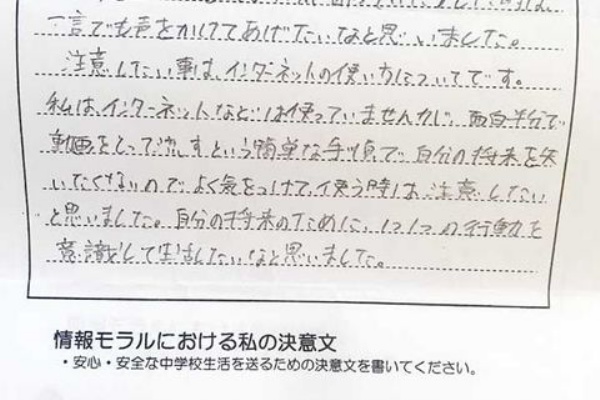 一言でも声をかけてあげたいなと思いました。
注意したい事は、インターネットの使い方についてです。
私は、インターネットなどは使っていませんが、面白半分で
動画をとって流すという簡単な手順で、自分の将来を失
いたくないのでよく気をつけて、使う時は、注意したい
と思いました。自分の将来のために、1つ1つの行動を
意識して生活したいなと思いました。
情報モラルにおける私の決意文
・安心・安全な中学校生活を送るための決意文を書いてください。